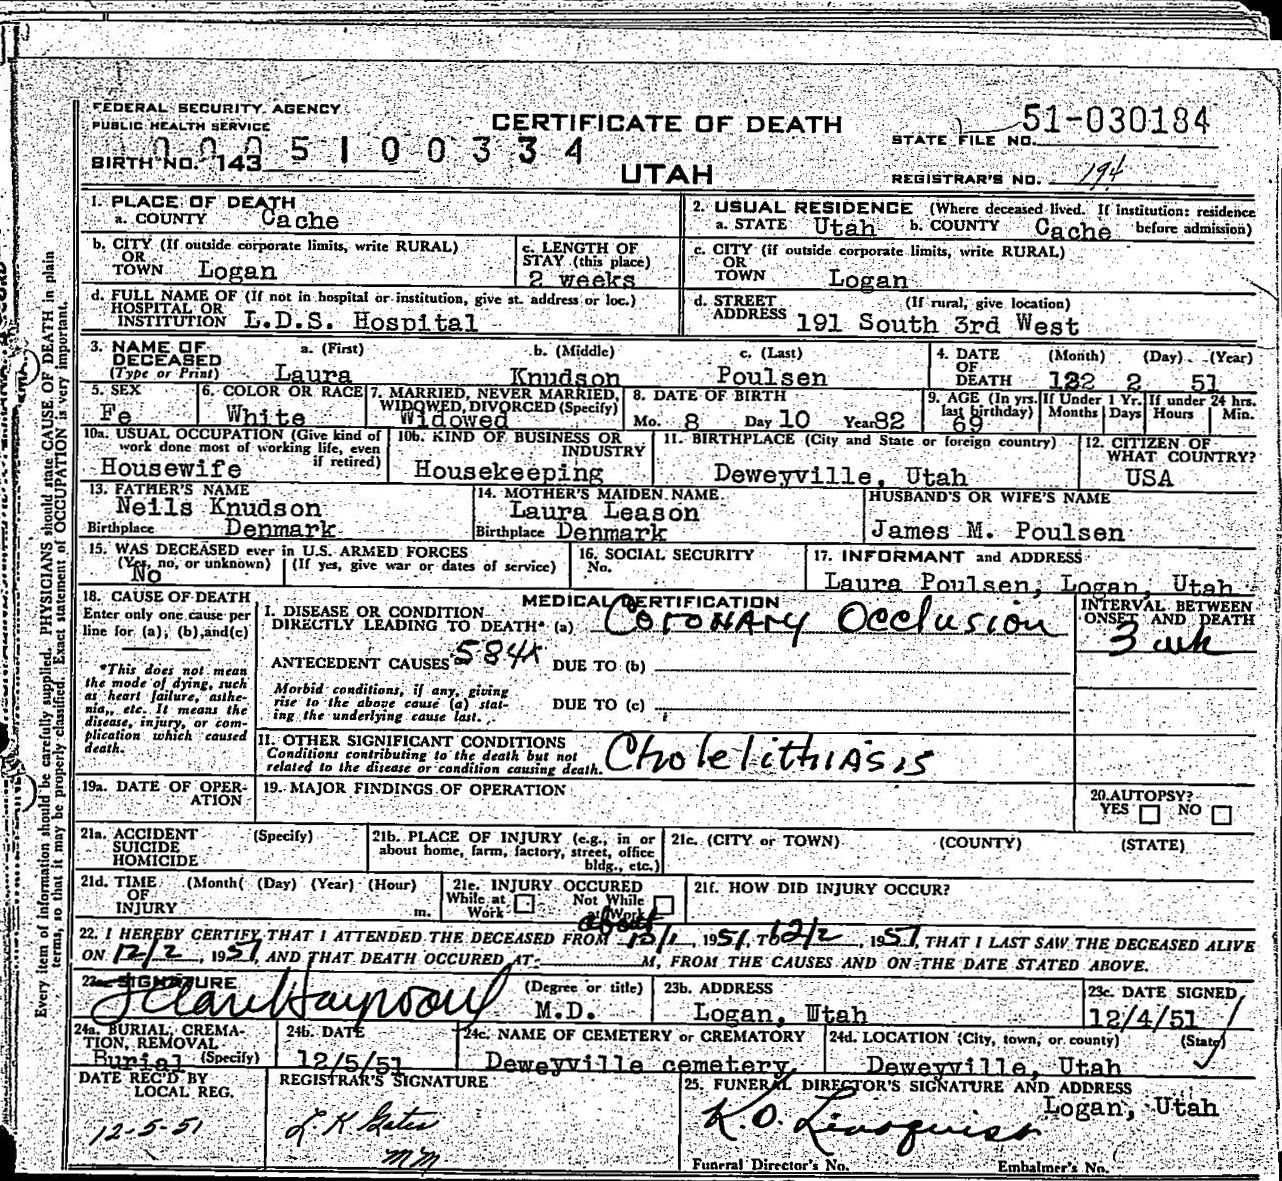 FEDERAL SECURITY AGENCY
PUBLIC HEALTH SERVICE
CERTIFICATE OF DEATH
UTAH
STATE FILE NO. 51-030184
BIRTH NO. 143 5100334
REGISTRAR'S NO. 194
1. PLACE OF DEATH
a. COUNTY Cache
2. USUAL RESIDENCE (Where deceased lived. If institution: residence before admission)
a. STATE Utah b. COUNTY Cache
b. CITY (If outside corporate limits, write RURAL)
OR TOWN Logan
c. LENGTH OF STAY (this place)
2 weeks
c. CITY (if outside corporate limits, write RURAL)
OR TOWN Logan
d. FULL NAME OF (If not in hospital or institution, give st. address or loc.)
HOSPITAL OR INSTITUTION L.D.S. Hospital
d. STREET ADDRESS (If rural, give location)
191 South 3rd West
3. NAME OF DECEASED (Type or Print)
a. (First) b. (Middle) c. (Last)
Laura Knudson Poulsen
4. DATE OF DEATH (Month) (Day) (Year)
2 51
5. SEX
Fe
6. COLOR OR RACE
White
7. MARRIED, NEVER MARRIED, WIDOWED, DIVORCED (Specify)
Widowed
8. DATE OF BIRTH
Mo. 8 Day 10 Year 82
9. AGE (In yrs. last birthday)
69
If Under 1 Yr. Months Days
If under 24 hrs. Hours Min.
10a. USUAL OCCUPATION (Give kind of work done most of working life, even if retired)
Housewife
10b. KIND OF BUSINESS OR INDUSTRY
Housekeeping
11. BIRTHPLACE (City and State or foreign country)
Deweyville, Utah
12. CITIZEN OF WHAT COUNTRY?
USA
13. FATHER'S NAME
Neils Knudson
Birthplace Denmark
14. MOTHER'S MAIDEN NAME
Laura Leason
Birthplace Denmark
HUSBAND'S OR WIFE'S NAME
James M. Poulsen
15. WAS DECEASED ever in U.S. ARMED FORCES
(Yes, no, or unknown) (If yes, give war or dates of service)
No
16. SOCIAL SECURITY
No.
17. INFORMANT and ADDRESS
Laura Poulsen, Logan, Utah
18. CAUSE OF DEATH
Enter only one cause per line for (a), (b), and (c)
*This does not mean the mode of dying, such as heart failure, asthenia, etc. It means the disease, injury, or complication which caused death.
MEDICAL CERTIFICATION
I. DISEASE OR CONDITION DIRECTLY LEADING TO DEATH* (a) Coronary Occlusion
INTERVAL BETWEEN ONSET AND DEATH
3 wk
ANTECEDENT CAUSES 584X DUE TO (b)
Morbid conditions, if any, giving rise to the above cause (a) stating the underlying cause last.
DUE TO (c)
11. OTHER SIGNIFICANT CONDITIONS
Conditions contributing to the death but not related to the disease or condition causing death.
Cholelithiasis
19a. DATE OF OPERATION
19. MAJOR FINDINGS OF OPERATION
20. AUTOPSY?
YES NO
21a. ACCIDENT SUICIDE HOMICIDE (Specify)
21b. PLACE OF INJURY (e.g., in or about home, farm, factory, street, office bldg., etc.)
21c. (CITY or TOWN) (COUNTY) (STATE)
21d. TIME OF INJURY (Month( (Day) (Year) (Hour) m.
21e. INJURY OCCURED
While at Work Not While at Work
21f. HOW DID INJURY OCCUR?
about
22. I HEREBY CERTIFY THAT I ATTENDED THE DECEASED FROM 12/1, 1951, TO 12/2, 1951, THAT I LAST SAW THE DECEASED ALIVE
ON 12/2, 1951, AND THAT DEATH OCCURED AT M, FROM THE CAUSES AND ON THE DATE STATED ABOVE.
22a. SIGNATURE (Degree or title)
Hayward M.D.
23b. ADDRESS
Logan, Utah
23c. DATE SIGNED
12/4/51
24a. BURIAL, CREMATION, REMOVAL (Specify)
Burial
24b. DATE
12/5/51
24c. NAME OF CEMETERY or CREMATORY
Deweyville cemetery
24d. LOCATION (City, town, or county) (State)
Deweyville, Utah
DATE REC'D BY LOCAL REG.
12-5-51
REGISTRAR'S SIGNATURE
L K Gates
mm
25. FUNERAL DIRECTOR'S SIGNATURE AND ADDRESS
Logan, Utah
K. O. Lindquist
Funeral Director's No. Embalmer's No.
Every item of information should be carefully supplied. PHYSICIANS should state CAUSE OF DEATH in plain
terms, so that it may be properly classified. Exact statement of OCCUPATION is very important.